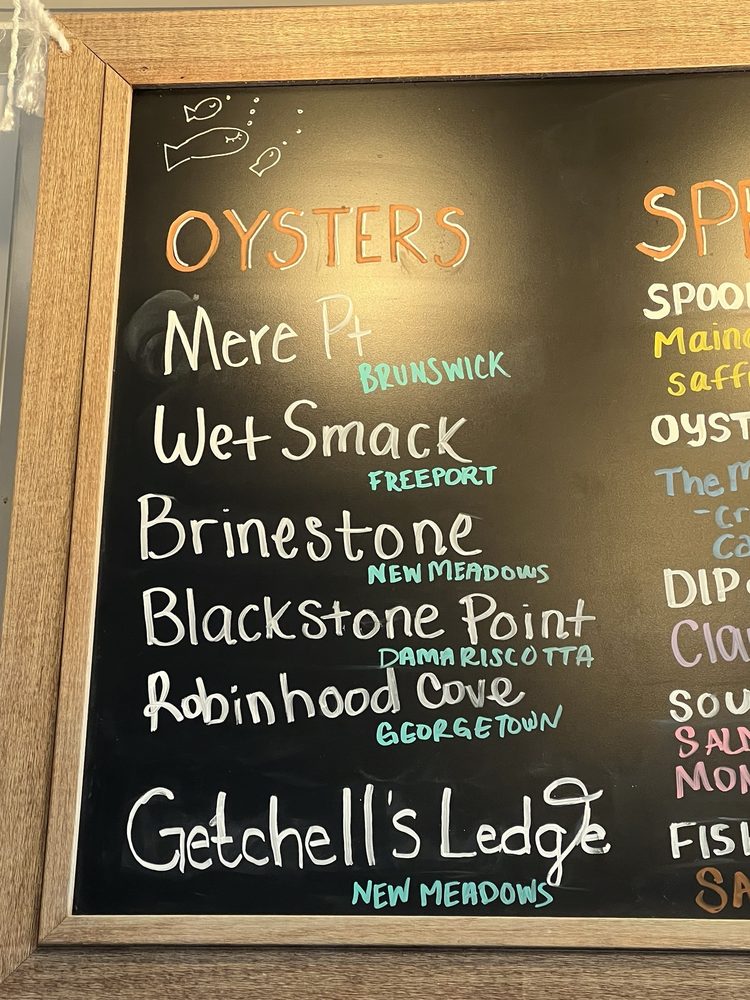 OYSTERS
Mere Pt
BRUNSWICK
Wet Smack
FREEPORT
Brinestone
NEW MEADOWS
Blackstone Point
DAMARISCOTTA
Robinhood Cove
GEORGETOWN
Getchell's Ledge
NEW MEADOWS
SP
SPOO
Maine
saff
OYST
The M
-cr
Ca
DIP
Cla
SOU
SAL
MON
FIS
SA